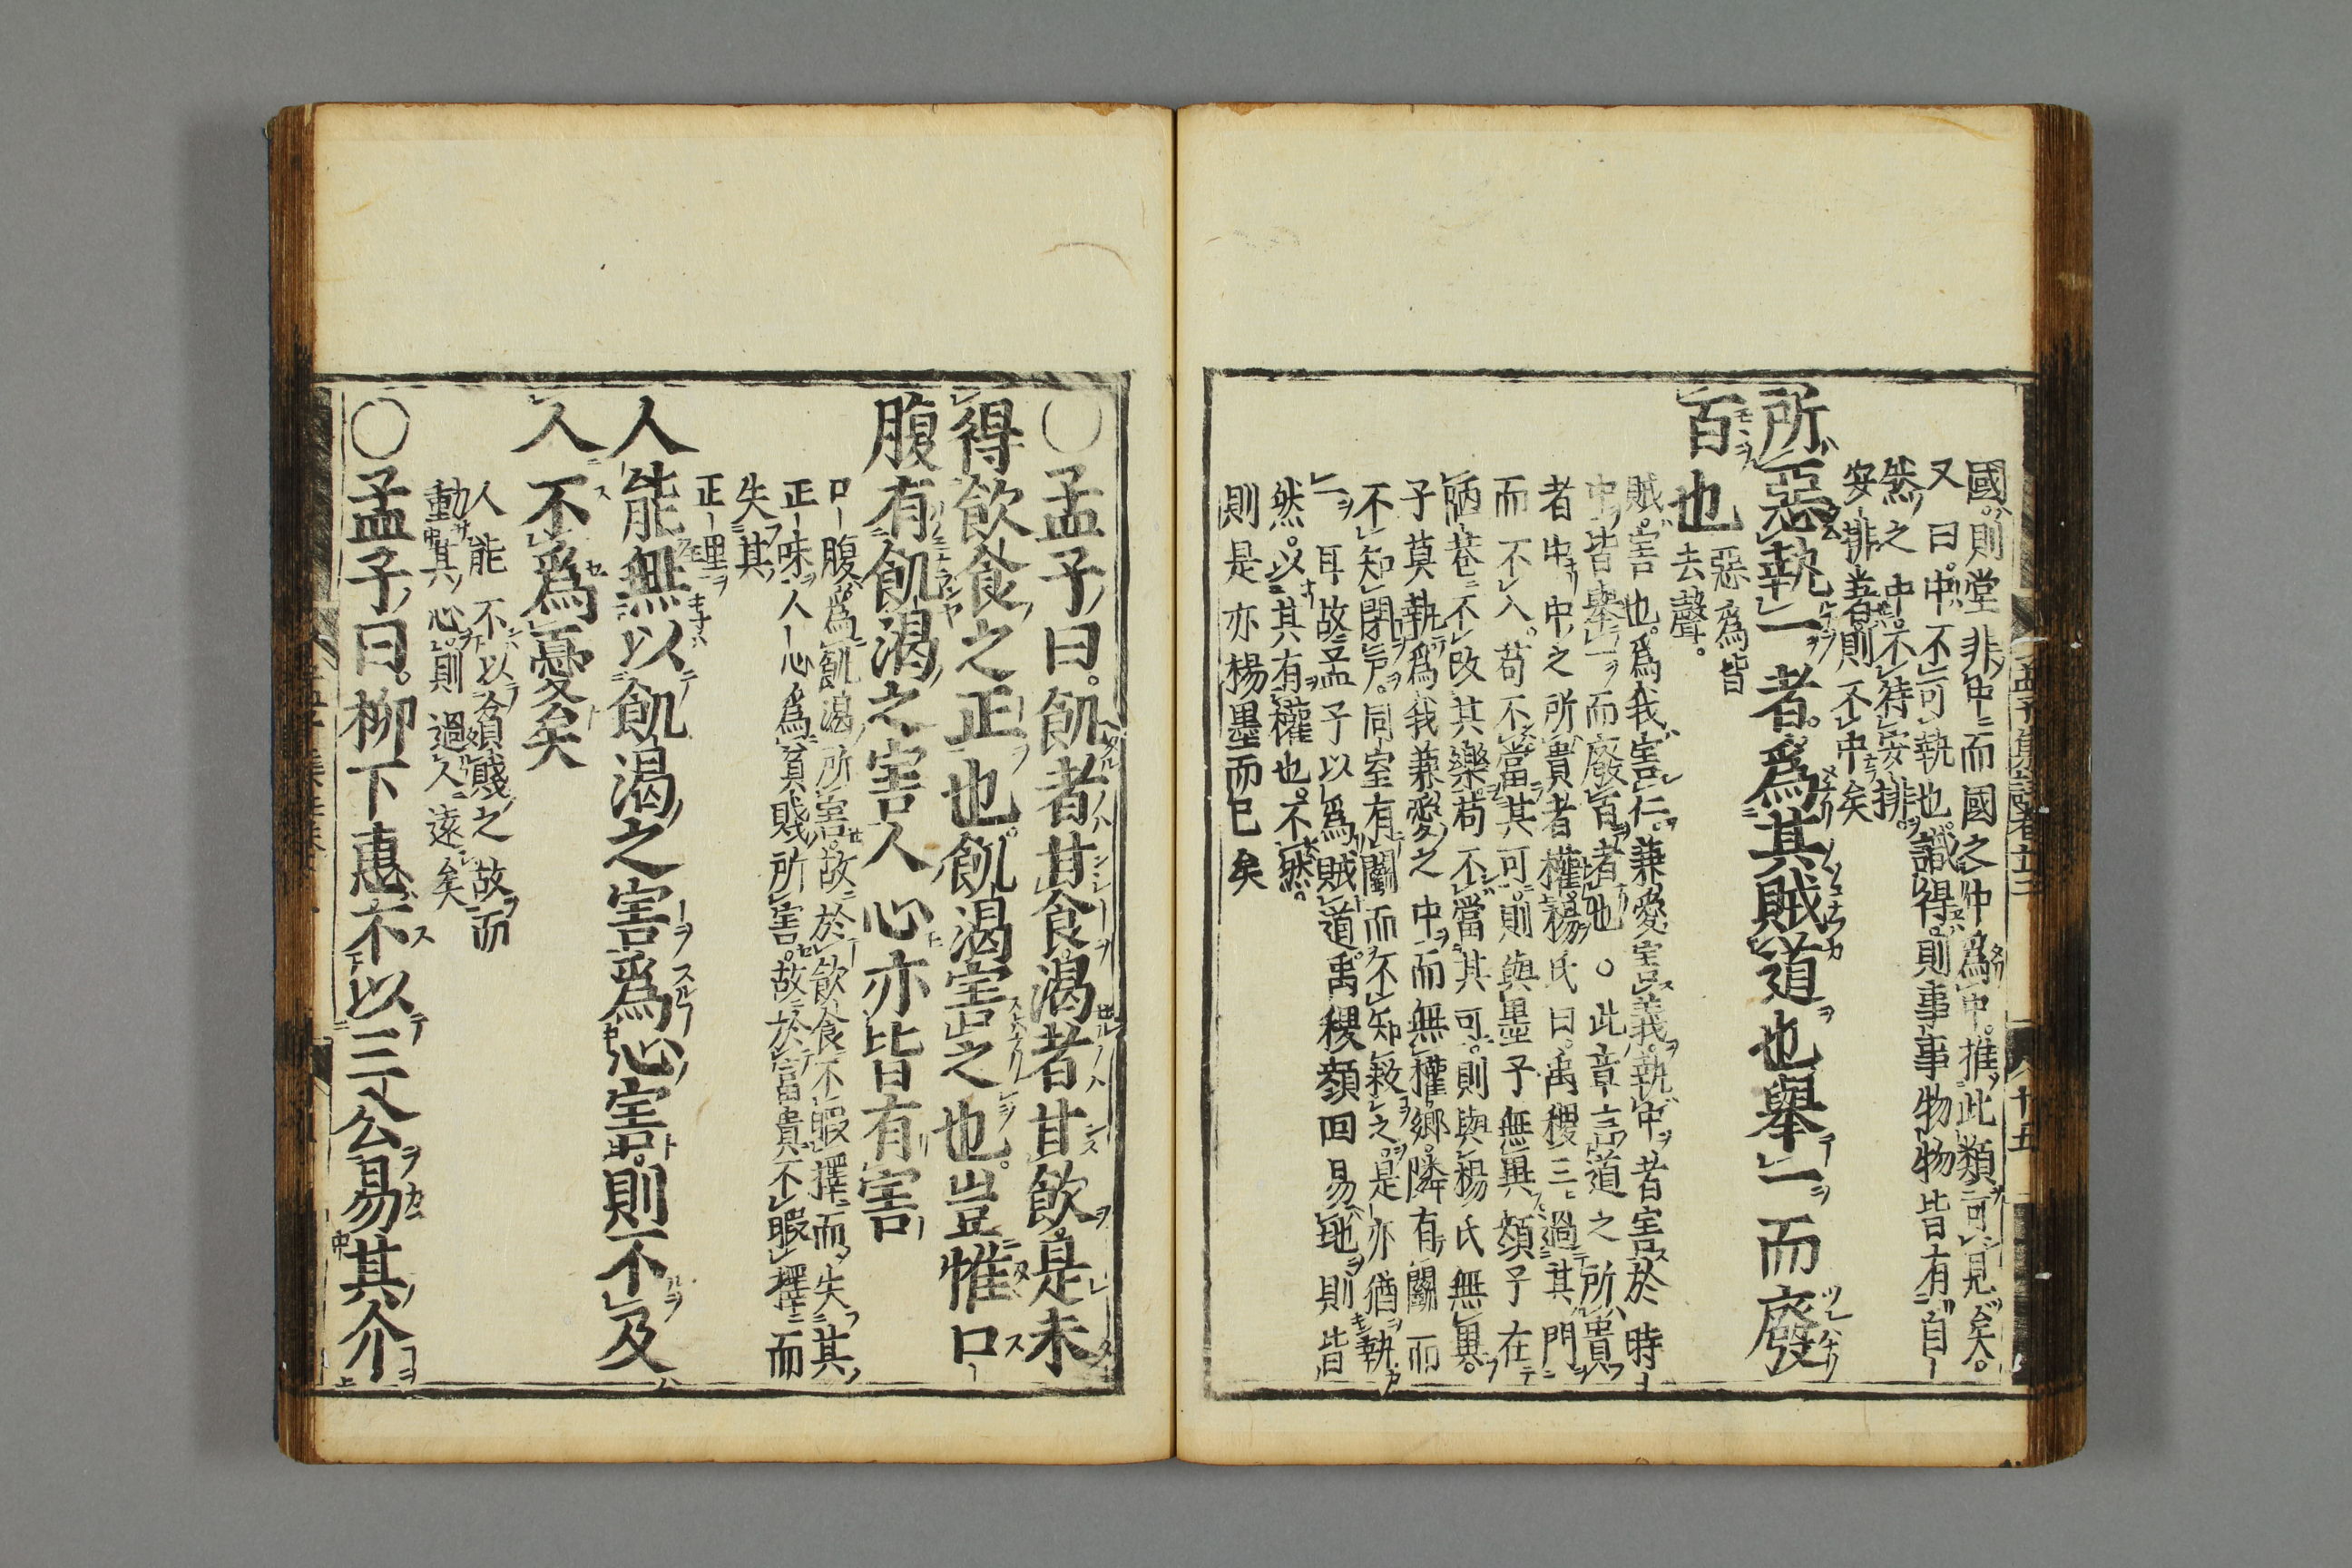 國。則堂非中而國之中爲中。推此類可見矣。
又曰。中不可執也。識得。則事事物物皆有自
然之中。不待安排。
安排著。則不中矣
所惡執一者。爲其賊道也舉一而廢
百也
惡爲皆
去聲。
賊。害也。爲我害仁。兼愛害義。執中者害於時
中。皆舉一而廢百者也。○此章言道之所貴
者中。中之所貴者權。楊氏曰。禹稷三過其門
而不入。苟不當其可。則與墨子無異。顏子在
陋巷不改其樂。苟不當其可。則與楊氏無異。
子莫執爲我兼愛之中。而無權。鄉隣有鬬而
不知閉戸。同室有鬬而不知救之。是亦猶執
一耳故孟子以爲賊道。禹稷顏回易地則皆
然。以其有權也。不然。
則是亦楊墨而已矣
○孟子曰。飢者甘食渴者甘飮是未
得飮食之正也。飢渴害之也。豈惟口
腹有飢渴之害人心亦皆有害
口腹爲飢渴所害。故於飮食不暇擇而失其
正味。人心爲貧賤所害。故於富貴不暇擇而
失其
正理
人能無以飢渴之害爲心害。則不及
人不爲憂矣
人能不以貧賤之故而
動其心。則過人遠矣
○孟子曰。柳下惠不以三公易其介